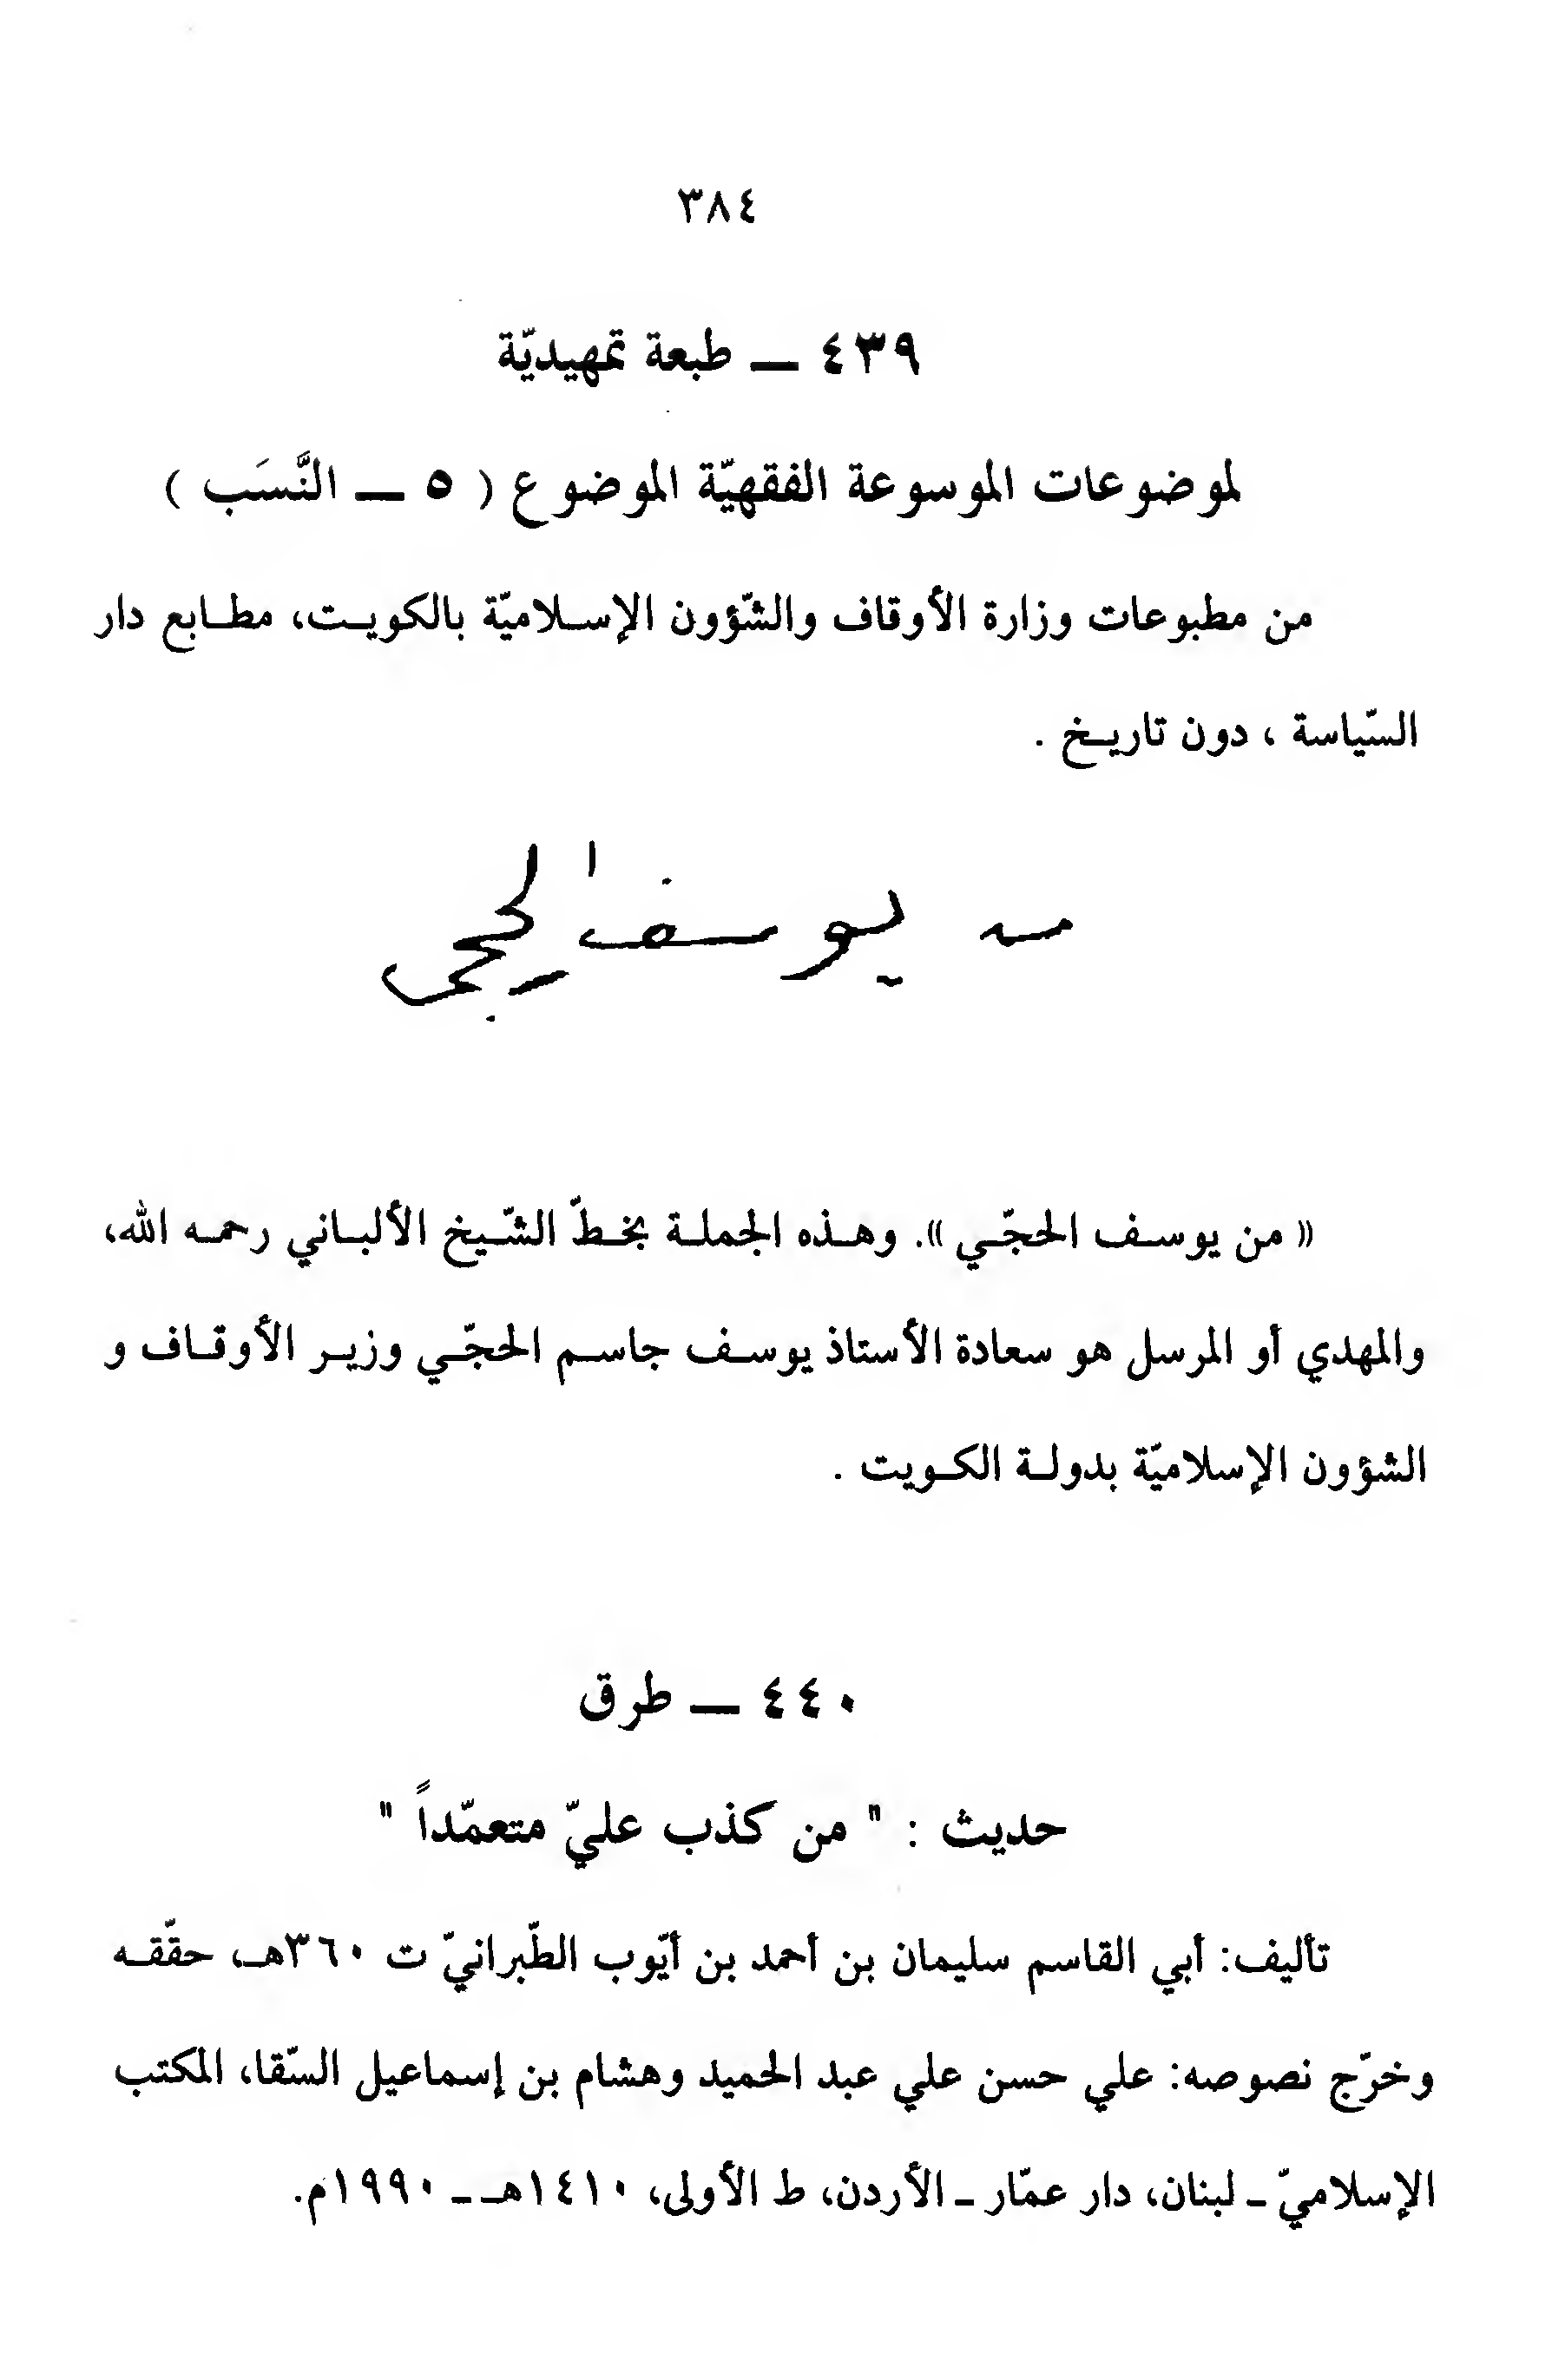 ٣٨٤
٤٣٩ — طبعة تمهيديّة
لموضوعات الموسوعة الفقهيّة الموضوع ( ٥ — النَّسَب )
من مطبوعات وزارة الأوقاف والشّؤون الإسلاميّة بالكويت، مطابع دار
السّياسة ، دون تاريخ .
من يوسف الحجي
« من يوسف الحجّي ». وهذه الجملة بخطّ الشّيخ الألباني رحمه الله،
والمهدي أو المرسل هو سعادة الأستاذ يوسف جاسم الحجّي وزير الأوقاف و
الشؤون الإسلاميّة بدولة الكويت .
٤٤٠ — طرق
حديث : " من كذب عليّ متعمّداً "
تأليف: أبي القاسم سليمان بن أحمد بن أيّوب الطّبرانيّ ت ٣٦٠هـ، حقّقه
وخرّج نصوصه: علي حسن علي عبد الحميد وهشام بن إسماعيل السّقا، المكتب
الإسلاميّ - لبنان، دار عمّار - الأردن، ط الأولى، ١٤١٠هـ - ١٩٩٠م.